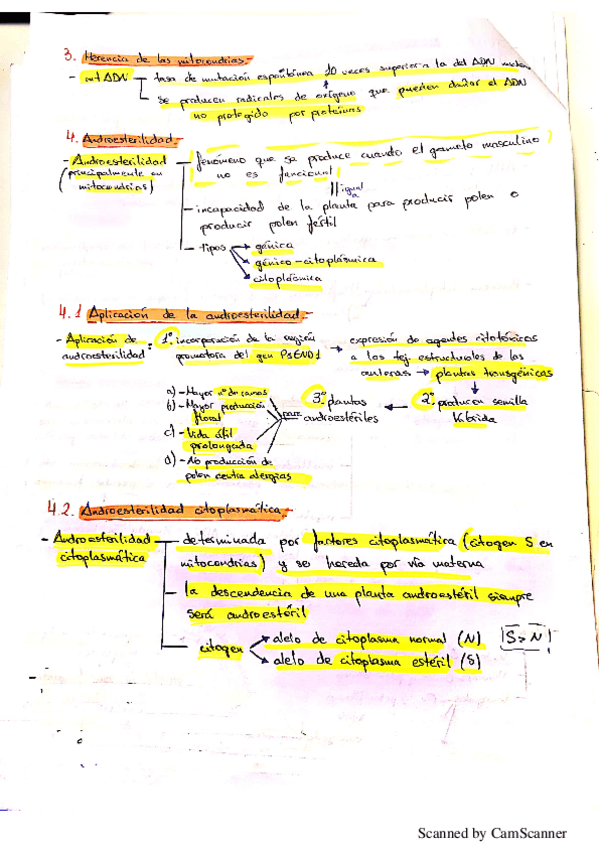 3. Herencia de las mitocondrias.
- mt ADN — tasa de mutación espontánea 10 veces superior a la del ADN
— se producen radicales de oxígeno que pueden dañar el ADN
no protegido por proteínas
4. Androesterilidad
- Androesterilidad — fenómeno que se produce cuando el gameto masculino
(principalmente en no es funcional
mitocondrias) || igual a
— incapacidad de la planta para producir polen o
producir polen fértil
— tipos → génica
→ génico-citoplásmica
→ citoplásmica
4.1 Aplicación de la androesterilidad.-
- Aplicación de : 1º incorporación de la región → expresión de agentes citotóxicos
androesterilidad promotora del gen PsEND1 a los tej. estructurales de las
anteras → plantas transgénicas
a) - Mayor nº de ramas 3º plantas ← 2º producen semilla
b) - Mayor producción para androestériles híbrida
floral
c) - Vida útil
prolongada
d) - No producción de
polen contra alergias
4.2. Androesterilidad citoplasmática.-
- Androesterilidad — determinada por factores citoplasmática (citogen S en
citoplasmática mitocondrias) y se hereda por vía materna
— la descendencia de una planta androestéril siempre
será androestéril
— citogen → alelo de citoplasma normal (N) S > N
→ alelo de citoplasma estéril (S)
Scanned by CamScanner